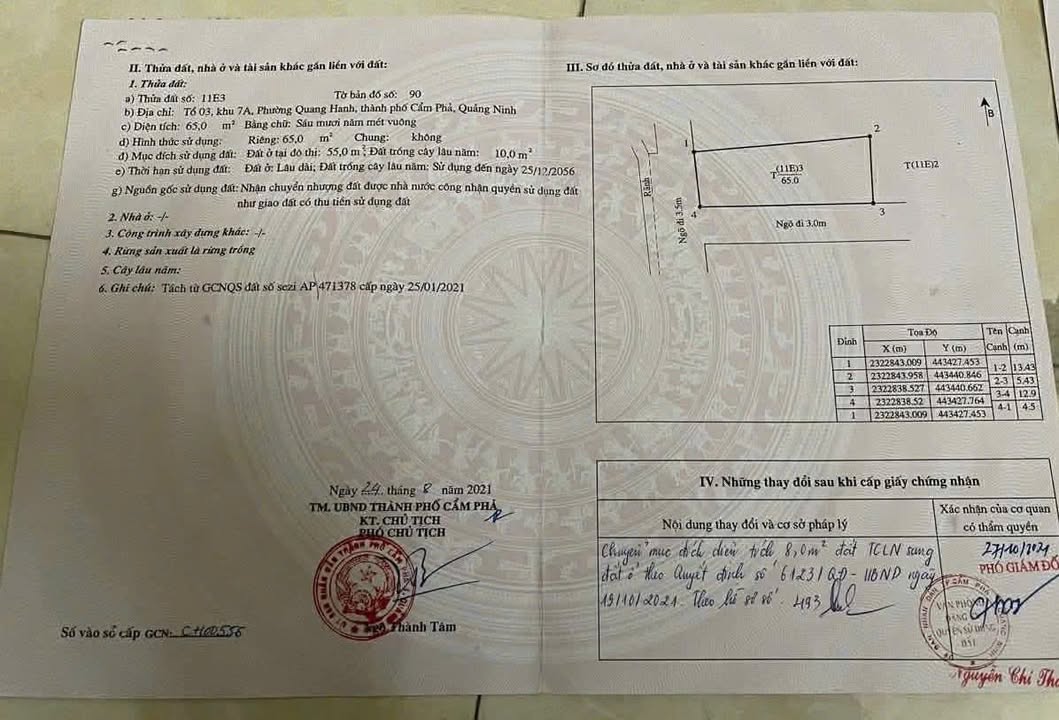 II. Thửa đất, nhà ở và tài sản khác gắn liền với đất:
1. Thửa đất:
a) Thửa đất số: 11E3 Tờ bản đồ số: 90
b) Địa chỉ: Tổ 03, khu 7A, Phường Quang Hanh, thành phố Cẩm Phả, Quảng Ninh
c) Diện tích: 65,0 m² Bằng chữ: Sáu mươi năm mét vuông
d) Hình thức sử dụng: Riêng: 65,0 m² Chung: không
đ) Mục đích sử dụng đất: Đất ở tại đô thị: 55,0 m²; Đất trồng cây lâu năm: 10,0 m²
e) Thời hạn sử dụng đất: Đất ở: Lâu dài; Đất trồng cây lâu năm: Sử dụng đến ngày 25/12/2056
g) Nguồn gốc sử dụng đất: Nhận chuyển nhượng đất được nhà nước công nhận quyền sử dụng đất
như giao đất có thu tiền sử dụng đất
2. Nhà ở: -/-
3. Công trình xây dựng khác: -/-
4. Rừng sản xuất là rừng trồng
5. Cây lâu năm:
6. Ghi chú: Tách từ GCNQS đất số sezi AP 471378 cấp ngày 25/01/2021
Ngày 24 tháng 8 năm 2021
TM. UBND THÀNH PHỐ CẨM PHẢ
KT. CHỦ TỊCH
PHÓ CHỦ TỊCH
Thành Tâm
Số vào sổ cấp GCN: CH00556
III. Sơ đồ thửa đất, nhà ở và tài sản khác gắn liền với đất:
B
1
2
3
4
T(11E)3
65.0
T(11E)2
Rãnh
Ngõ đi 3.5m
Ngõ đi 3.0m
Đỉnh Tọa Độ Tên Cạnh
X (m) Y (m) Cạnh (m)
1 2322843.009 443427.453
1-2 13.43
2 2322843.958 443440.846
2-3 5.43
3 2322838.527 443440.662
3-4 12.9
4 2322838.52 443427.764
4-1 4.5
1 2322843.009 443427.453
IV. Những thay đổi sau khi cấp giấy chứng nhận
Nội dung thay đổi và cơ sở pháp lý
Xác nhận của cơ quan
có thẩm quyền
Chuyển mục đích diện tích 8,0m² đất TCLN sang
đất ở theo Quyết định số 6123/QĐ-UBND ngày
19/10/2021. Theo hồ sơ số: 493
27/10/2021
PHÓ GIÁM ĐỐ
VĂN PHÒNG
ĐĂNG
QUYỀN SỬ DỤNG
ĐẤT
Nguyễn Chí Th